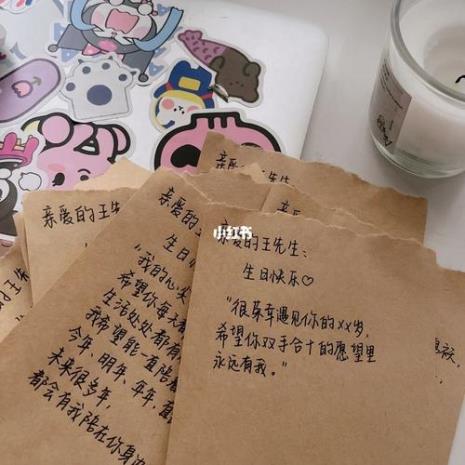 亲爱的王先生：
生日快乐♡
"很荣幸遇见你的xx岁，
希望你双手合十的愿望里
永远有我。"
亲爱的
生日快
"我的心
希望你每天
生活处处都有
我希望能一直陪
今年、明年、年年,
未来很多年，
都会有我陪在你身
亲爱的
小红书